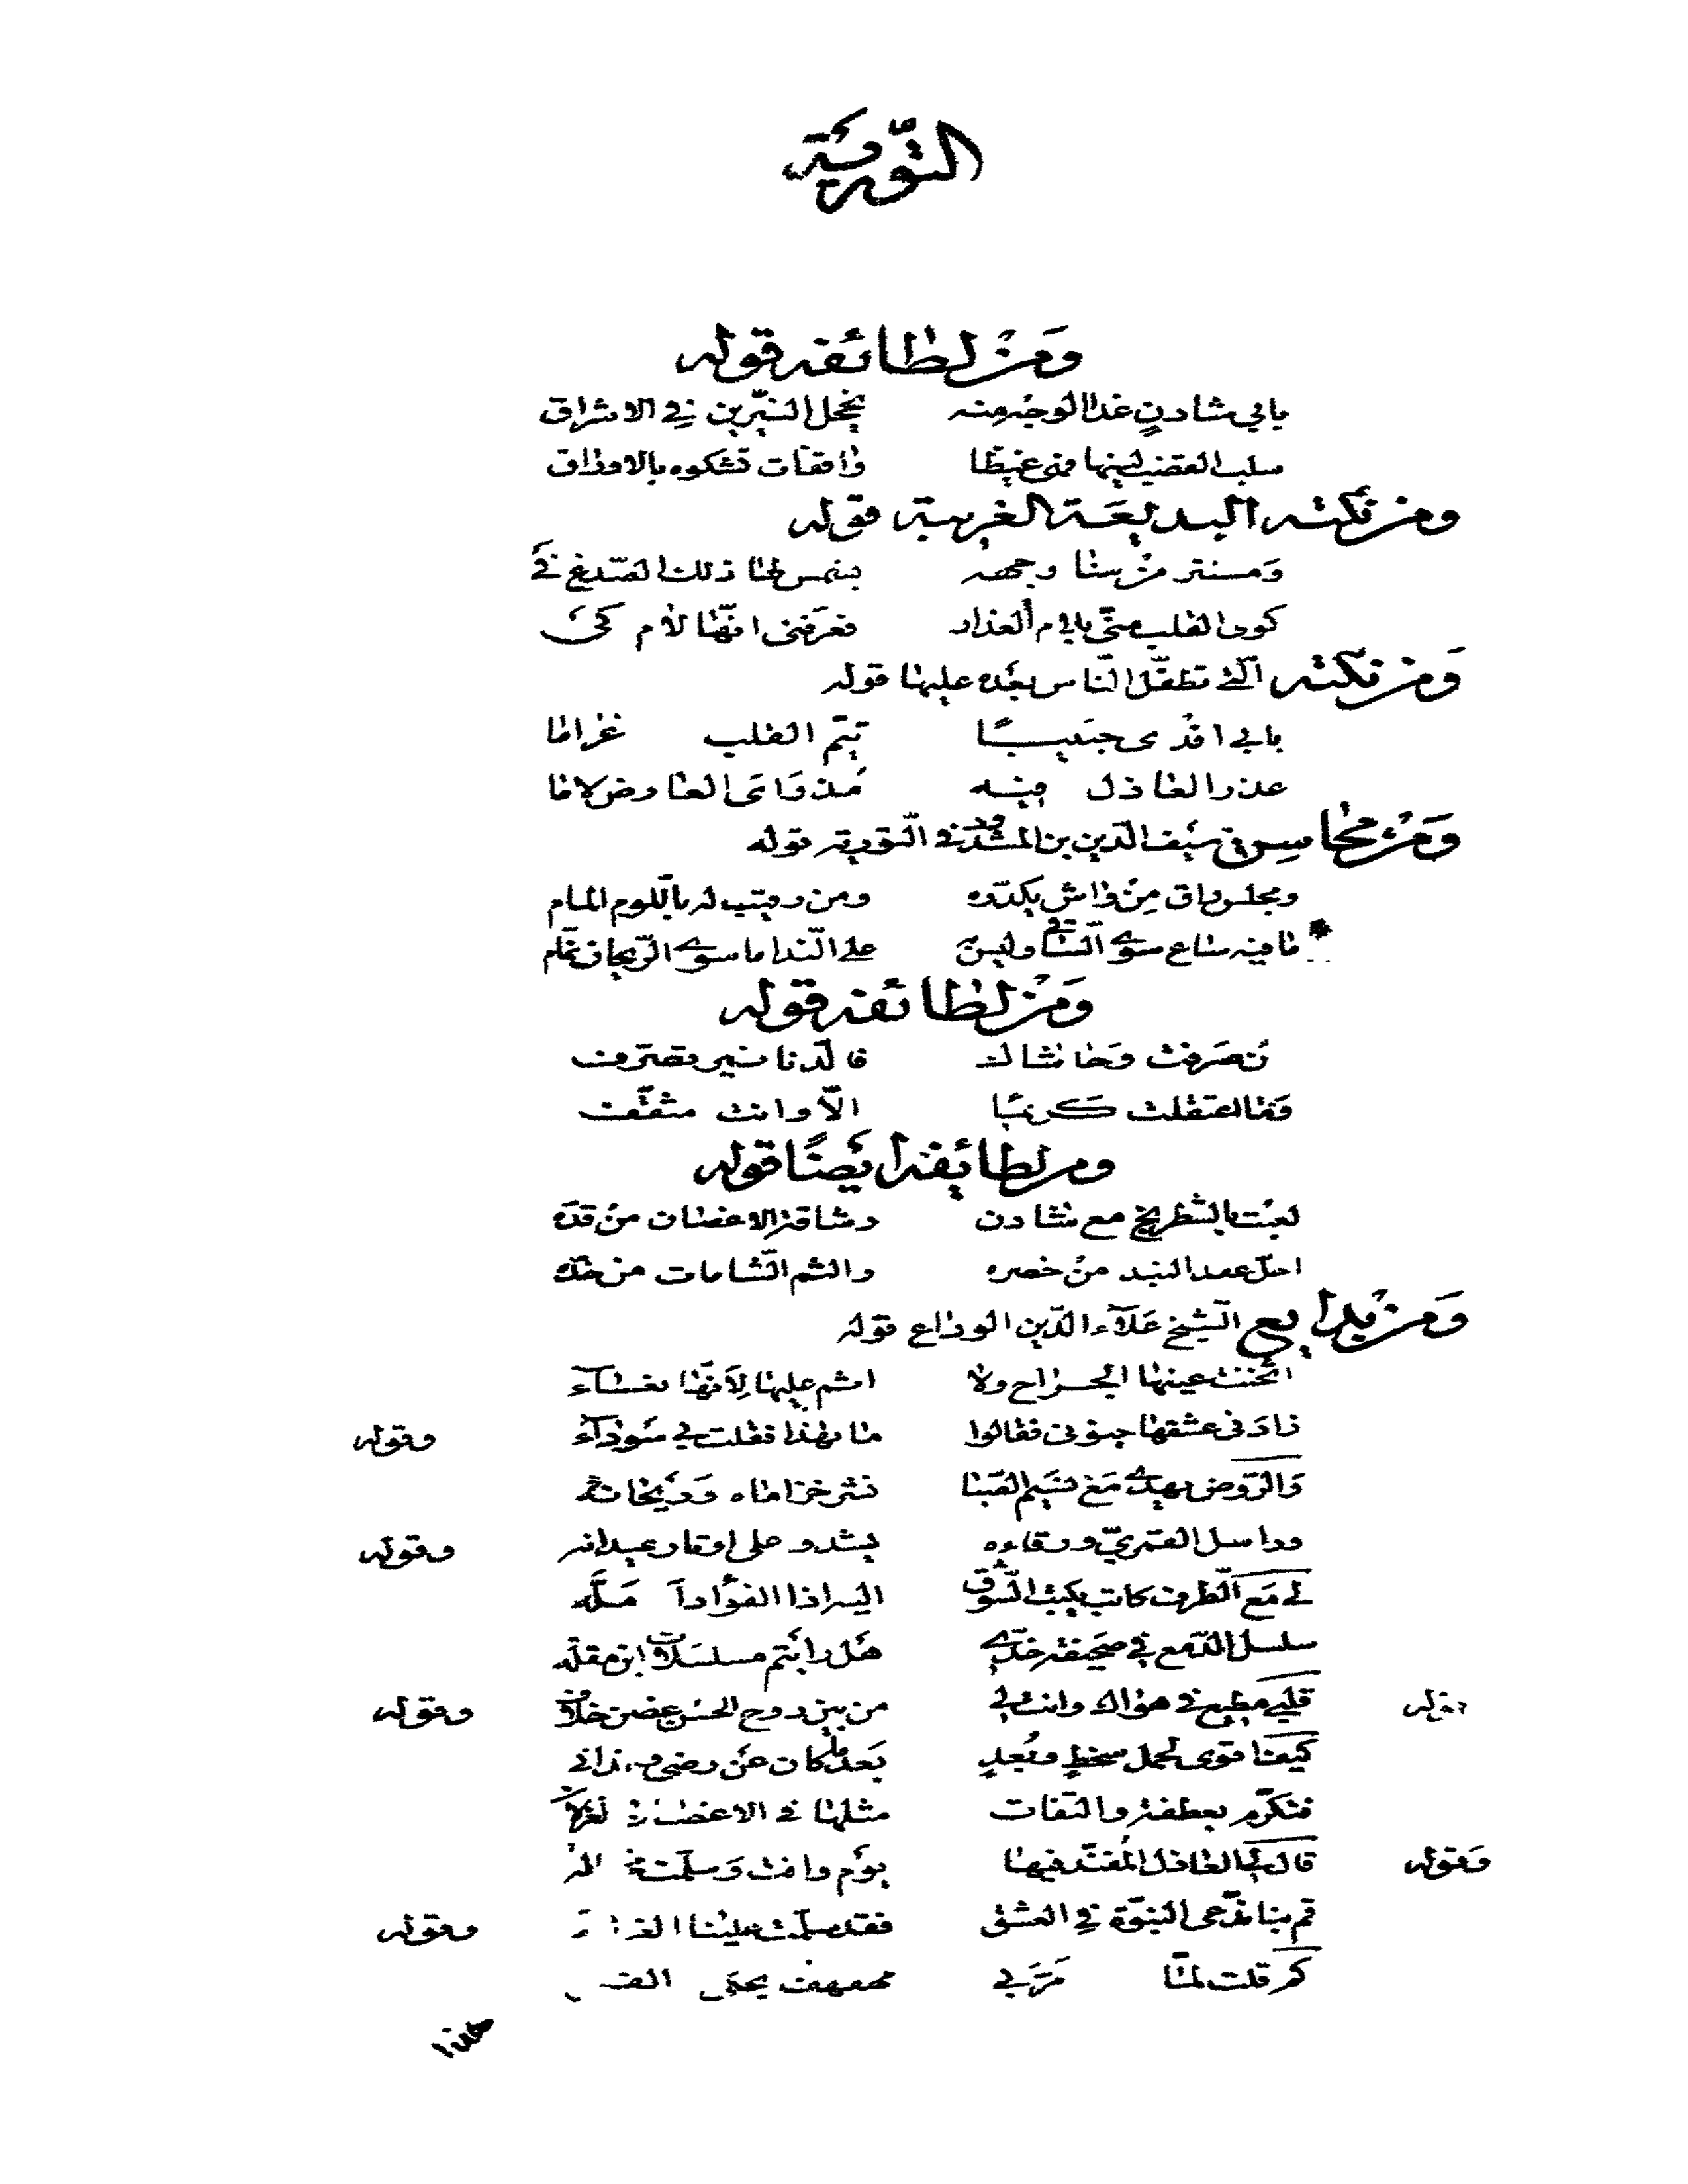 التّورية
ومن لطائفه قوله
بابي شادن غدا الوجه منه يخجل النيّرين في الاشراق
سلب القضب لينها فهي غيظا واقفات تشكوه بالاوراق
ومن نكته البديعة الغريبة قوله
ومستتر من سنا وجهه بشمس لها ذلك الصّدغ في
كوى القلب منّي بلام العذار فعرّفني انّها لام كي
ومن نكته الّتي تطفّل النّاس بعده عليها قوله
بابي افدي حبيبًا تيّم القلب غراما
عذر العاذل فيه مذ راى العارض لاما
ومن محاسن سيف الدّين بن المشدّ في التّورية قوله
ومجلس راق من واش يكدّره ومن رقيب له باللّوم المام
ما فيه ساع سوى السّاقي وليس على النّداما سوى الرّيحان نمّام
ومن لطائفه قوله
تصرفت وحاشاك قالّدنا نير تصرف
وما اعتقلت كريمًا الّا وانت مثقّف
ومن لطايفه ايضًا قوله
لعبت بالشّطرنج مع شادن رشاقة الاغصان من قدّه
احلّ عقد البند من خصره والثم الشّامات من خدّه
ومن بدايع الشّيخ علآء الدّين الوداع قوله
اثخنت عينها الجراح ولا اثم عليها لأنّها نعسآء
زاد في عشقها جنوني فقالوا ما بهذا فقلت بي سودآء وقوله
والرّوض يهدي مع نسيم الصّبا نشر خزاماه وريحانه
وراسل القمريّ ورقاءه يشدو على اوتار عيدانه وقوله
لي مع الطّرف كاتب يكتب الشّوق اليه اذا الفؤاد املّه
سلسل الدّمع في صحيفة خدّي هل رايتم مسلسلات ابن مقله
وقوله قلبي مطيع في هواك وانت لي من بين روح الحسن غصن خلاف وقوله
كيف اقوى لحمل سخط وبعد بعد ما كان عن رضى وتداني
فتكرّم بعطفة والتفات مثلها في الاغصان
وقوله قال لي العاذل المفنّد فيها يوم وافت وسلّمت
قم بنا ندّعي النبوّة في العشق فقد سلّمت علينا وقوله
كم قلت لمّا مرّ بي مهفهف يحكي
هذا